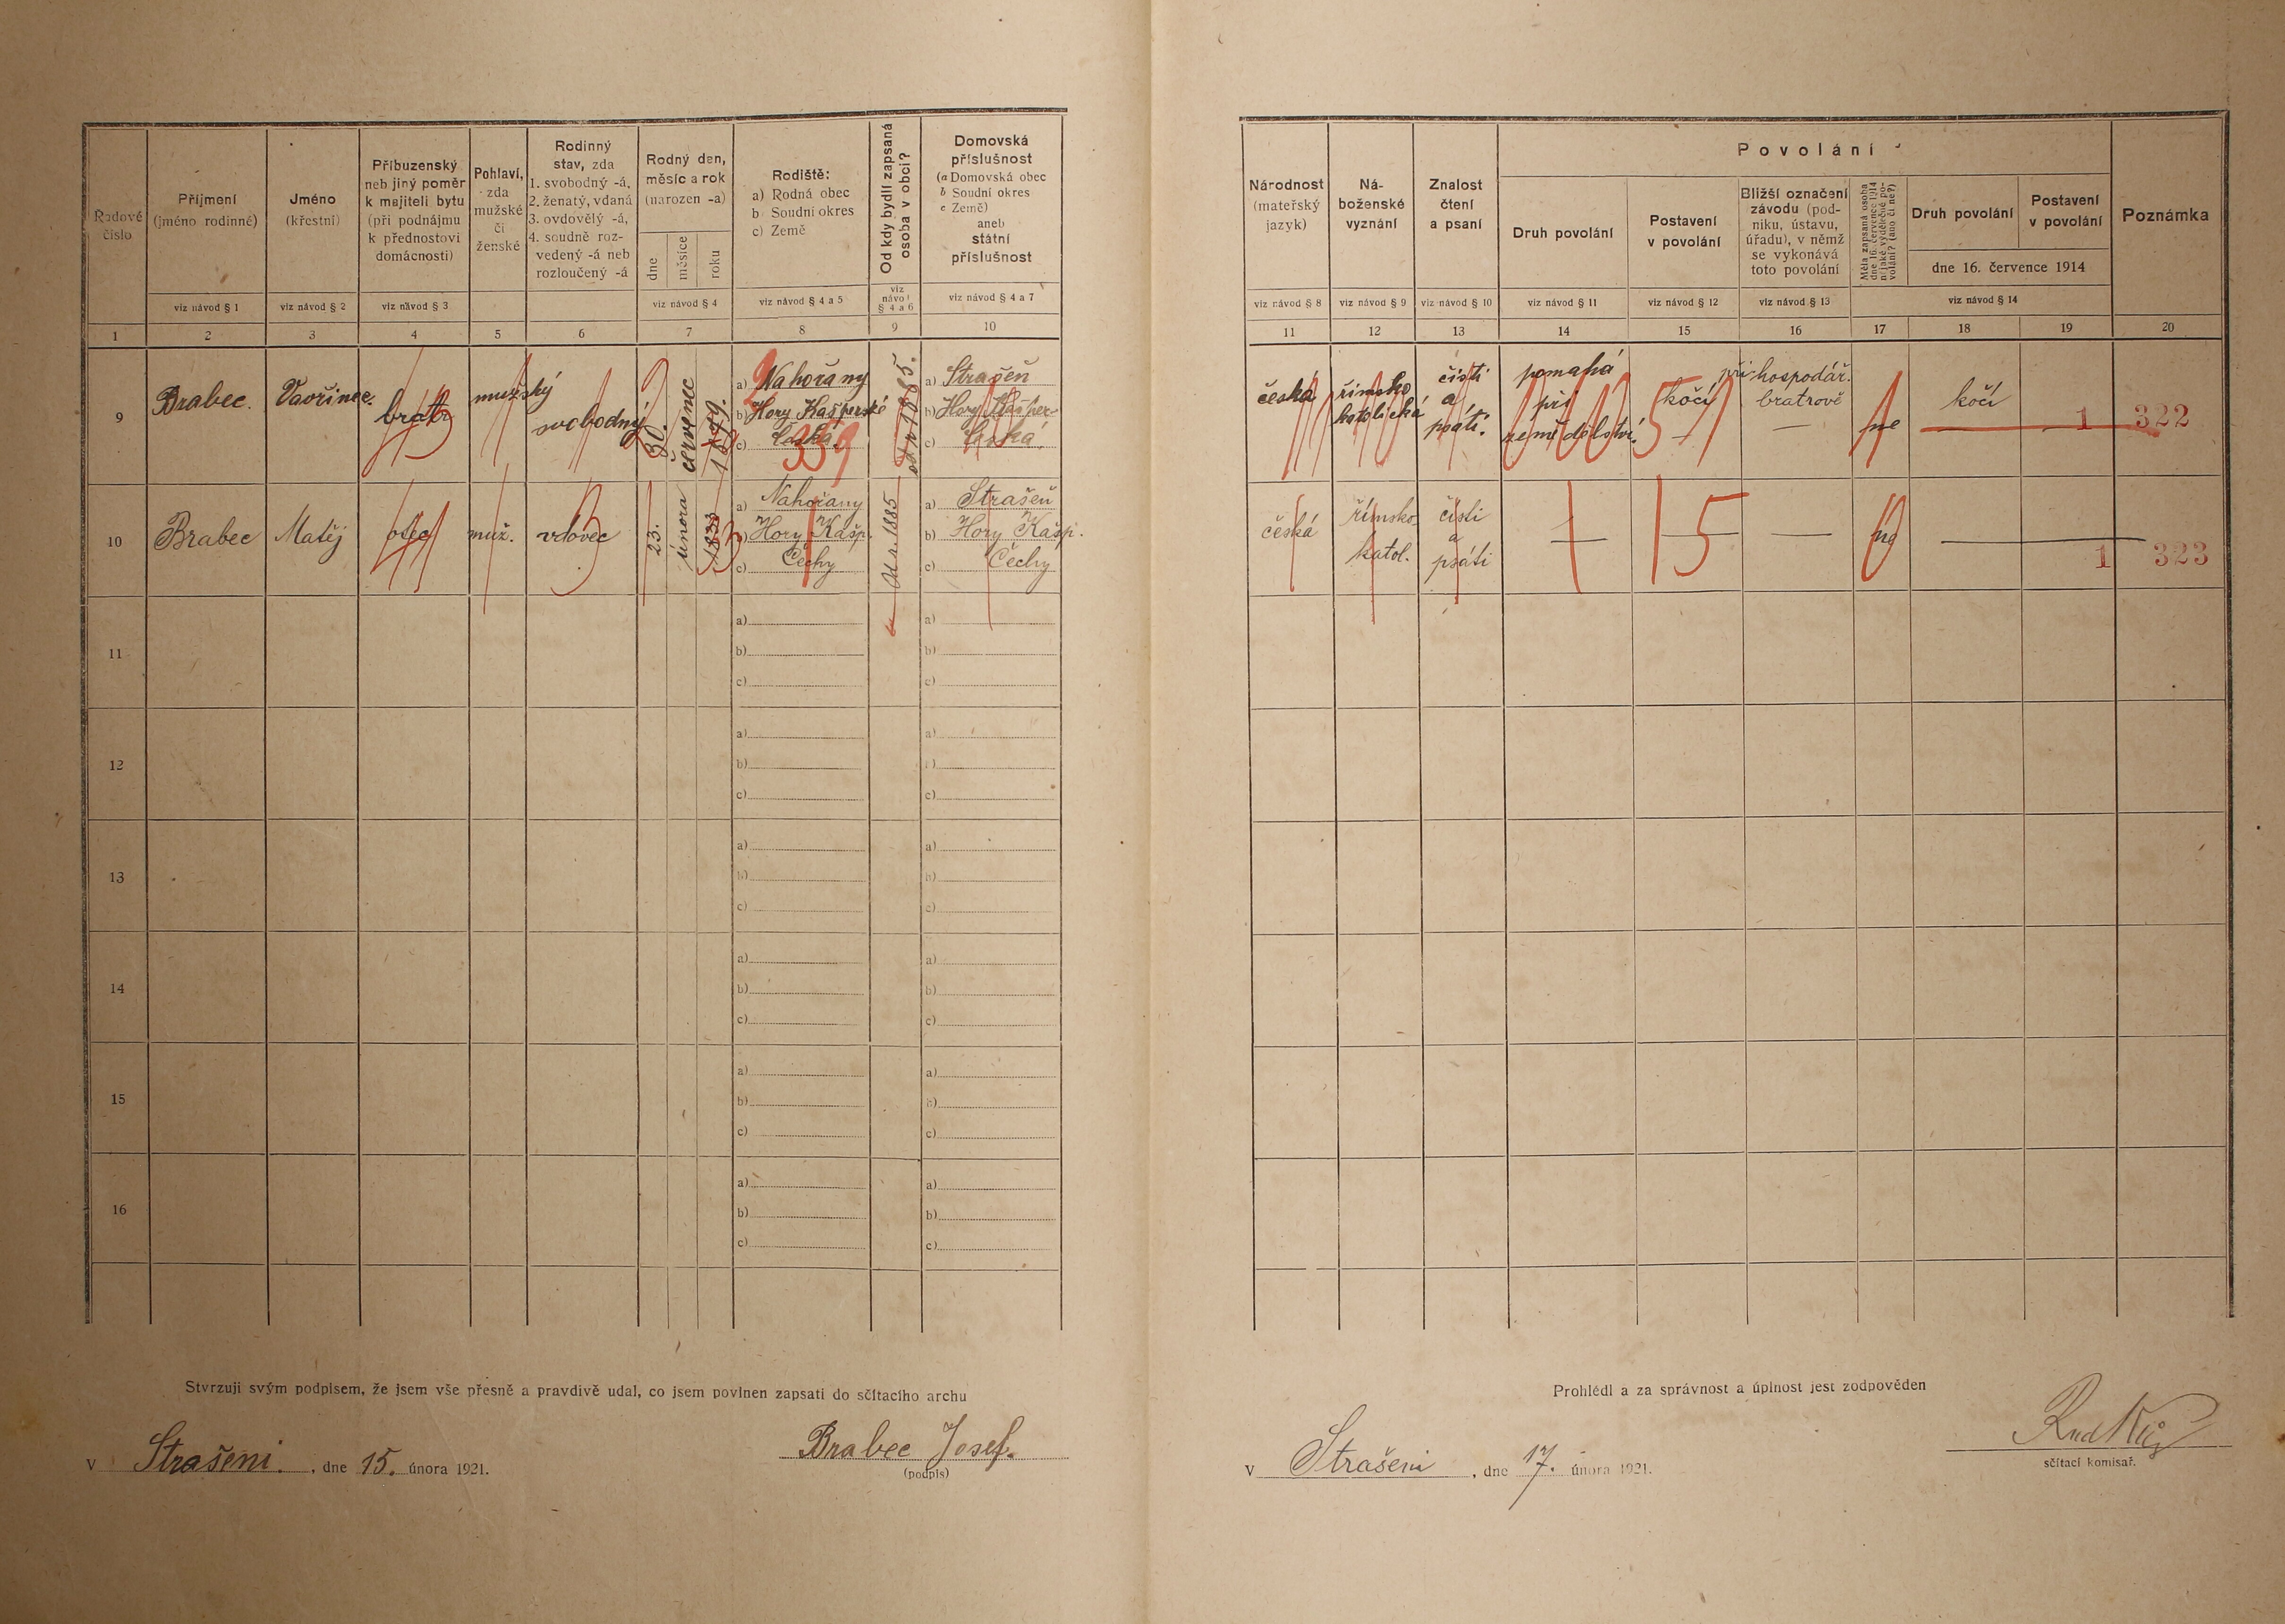 Řadové
číslo
Příjmení
(jméno rodinné)
viz návod § 1
Jméno
(křestní)
viz návod § 2
Příbuzenský
neb jiný poměr
k majiteli bytu
(při podnájmu
k přednostovi
domácnosti)
viz návod § 3
Pohlaví,
zda
mužské
či
ženské
Rodinný
stav, zda
1. svobodný -á,
2. ženatý, vdaná
3. ovdovělý -á,
4. soudně roz-
vedený -á neb
rozloučený -á
Rodný den,
měsíc a rok
(narozen -a)
dne
měsíce
roku
viz návod § 4
Rodiště:
a) Rodná obec
b Soudní okres
c) Země
viz návod § 4 a 5
Od kdy bydlí zapsaná
osoba v obci?
viz
návod
§ 4 a 6
Domovská
příslušnost
(a Domovská obec
b Soudní okres
c Země)
aneb
státní
příslušnost
viz návod § 4 a 7
Národnost
(mateřský
jazyk)
viz návod § 8
Ná-
boženské
vyznání
viz návod § 9
Znalost
čtení
a psaní
viz návod § 10
Povolání
Druh povolání
viz návod § 11
Postavení
v povolání
viz návod § 12
Bližší označení
závodu (pod-
niku, ústavu,
úřadu), v němž
se vykonává
toto povolání
viz návod § 13
Měla zapsaná osoba
dne 16. července 1914
nějaké výdělečné po-
volání? (ano či ne?)
Druh povolání
Postavení
v povolání
dne 16. července 1914
viz návod § 14
Poznámka
1 2 3 4 5 6 7 8 9 10 11 12 13 14 15 16 17 18 19 20
9
Brabec.
Vavřinec.
bratr
mužský
svobodný
30.
červenec
a) Nahořany
b) Hory Kašperské
c) Česká
359
od r. 1885.
a) Strašeň
b) Hory Kašper-
c) Česká
česká
římsko
katolická
čísti
a
psáti.
pomahá
při
zemědělství.
kočí
—
při hospodář.
bratrově
—
ne
kočí
1
322
10
Brabec
Matěj
otec
muž.
vdovec
23.
února
1833
a) Nahořany
b) Hory Kašp.
c) Čechy
Od r. 1885
a) Strašeň
b) Hory Kašp.
c) Čechy
česká
římsko
katol.
čísti
a
psáti
—
15
—
—
1
323
11
a)
b)
c)
a)
b)
c)
12
a)
b)
c)
a)
b)
c)
13
a)
b)
c)
a)
b)
c)
14
a)
b)
c)
a)
b)
c)
15
a)
b)
c)
a)
b)
c)
16
a)
b)
c)
a)
b)
c)
Stvrzuji svým podpisem, že jsem vše přesně a pravdivě udal, co jsem povinen zapsati do sčítacího archu
v Strašeni. , dne 15. února 1921.
Brabec Josef.
(podpis)
Prohlédl a za správnost a úplnost jest zodpověden
v Strašeni , dne 17. února 1921.
sčítací komisař.